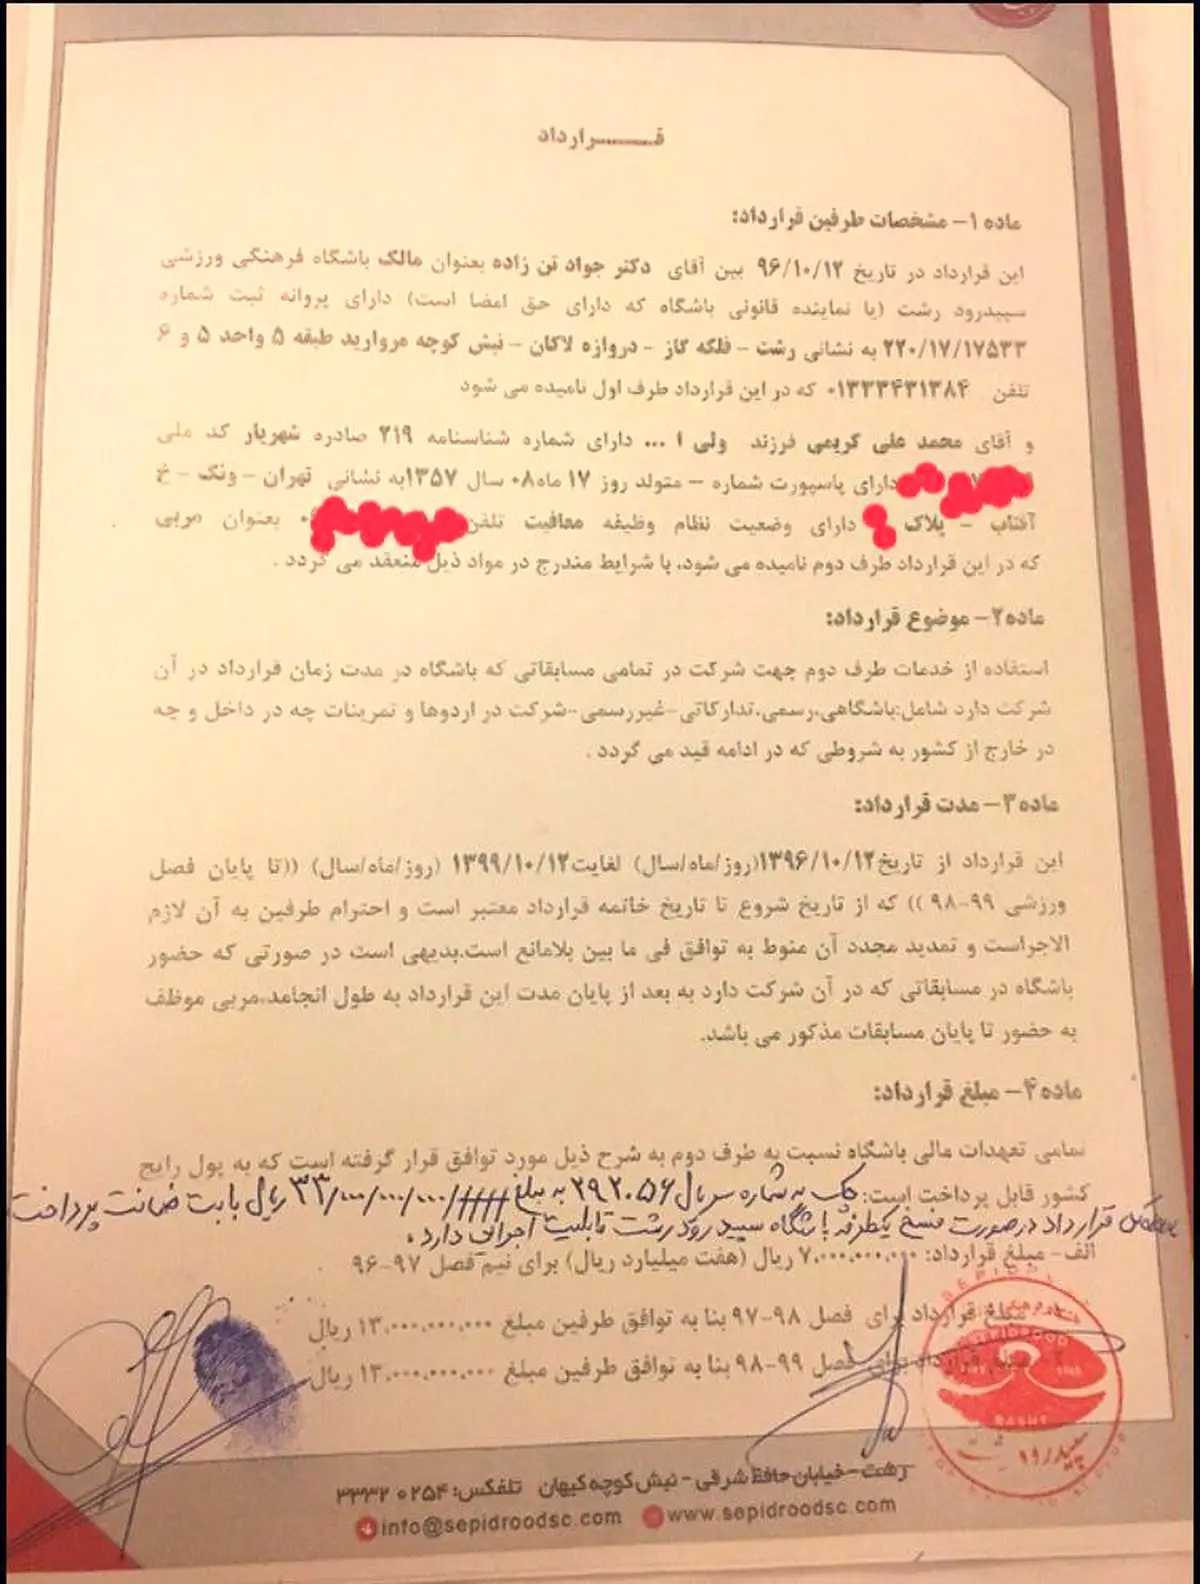 قـــــــرارداد
ماده ۱- مشخصات طرفین قرارداد:
این قرارداد در تاریخ ۹۶/۱۰/۱۲ بین آقای دکتر جواد تن زاده بعنوان مالک باشگاه فرهنگی ورزشی
سپیدرود رشت (یا نماینده قانونی باشگاه که دارای حق امضا است) دارای پروانه ثبت شماره
۲۲۰/۱۷/۱۷۵۳۳ به نشانی رشت - فلکه گاز - دروازه لاکان - نبش کوچه مروارید طبقه ۵ واحد ۵ و ۶
تلفن ۰۱۳۳۳۴۳۱۳۸۴ که در این قرارداد طرف اول نامیده می شود
و آقای محمد علی کریمی فرزند ولی ا ... دارای شماره شناسنامه ۲۱۹ صادره شهریار کد ملی
دارای پاسپورت شماره - متولد روز ۱۷ ماه۰۸ سال ۱۳۵۷به نشانی تهران - ونک - خ
آفتاب - پلاک دارای وضعیت نظام وظیفه معافیت تلفن بعنوان مربی
که در این قرارداد طرف دوم نامیده می شود، با شرایط مندرج در مواد ذیل منعقد می گردد .
ماده۲- موضوع قرارداد:
استفاده از خدمات طرف دوم جهت شرکت در تمامی مسابقاتی که باشگاه در مدت زمان قرارداد در آن
شرکت دارد شامل:باشگاهی،رسمی،تدارکاتی-غیررسمی-شرکت در اردوها و تمرینات چه در داخل و چه
در خارج از کشور به شروطی که در ادامه قید می گردد .
ماده۳- مدت قرارداد:
این قرارداد از تاریخ ۱۳۹۶/۱۰/۱۲(روز/ماه/سال) لغایت۱۳۹۹/۱۰/۱۲ (روز/ماه/سال) ((تا پایان فصل
ورزشی ۹۹-۹۸ )) که از تاریخ شروع تا تاریخ خاتمه قرارداد معتبر است و احترام طرفین به آن لازم
الاجراست و تمدید مجدد آن منوط به توافق فی ما بین بلامانع است.بدیهی است در صورتی که حضور
باشگاه در مسابقاتی که در آن شرکت دارد به بعد از پایان مدت این قرارداد به طول انجامد،مربی موظف
به حضور تا پایان مسابقات مذکور می باشد.
ماده۴- مبلغ قرارداد:
تمامی تعهدات مالی باشگاه نسبت به طرف دوم به شرح ذیل مورد توافق قرار گرفته است که به پول رایج
کشور قابل پرداخت است: چک به شماره سریال ۲۹۲۰۵۶ به مبلغ ۳۳/۰۰۰/۰۰۰/۰۰۰ ریال بابت ضمانت پرداخت
قرارداد درصورت فسخ یکطرفه باشگاه سپیدرود رشت قابلیت اجرایی دارد .
الف- مبلغ قرارداد: ۷.۰۰۰.۰۰۰.۰۰۰ ریال (هفت میلیارد ریال) برای نیم فصل ۹۷-۹۶ .
مبلغ قرارداد برای فصل ۹۸-۹۷ بنا به توافق طرفین مبلغ ۱۳.۰۰۰.۰۰۰.۰۰۰ ریال
مبلغ قرارداد برای فصل ۹۹-۹۸ بنا به توافق طرفین مبلغ ۱۳.۰۰۰.۰۰۰.۰۰۰ ریال
SEPIDROOD
RASHT
رشت-خیابان حافظ شرقی - نبش کوچه کیهان تلفکس: ۳۳۳۲۰۲۵۴
info@sepidroodsc.com www.sepidroodsc.com